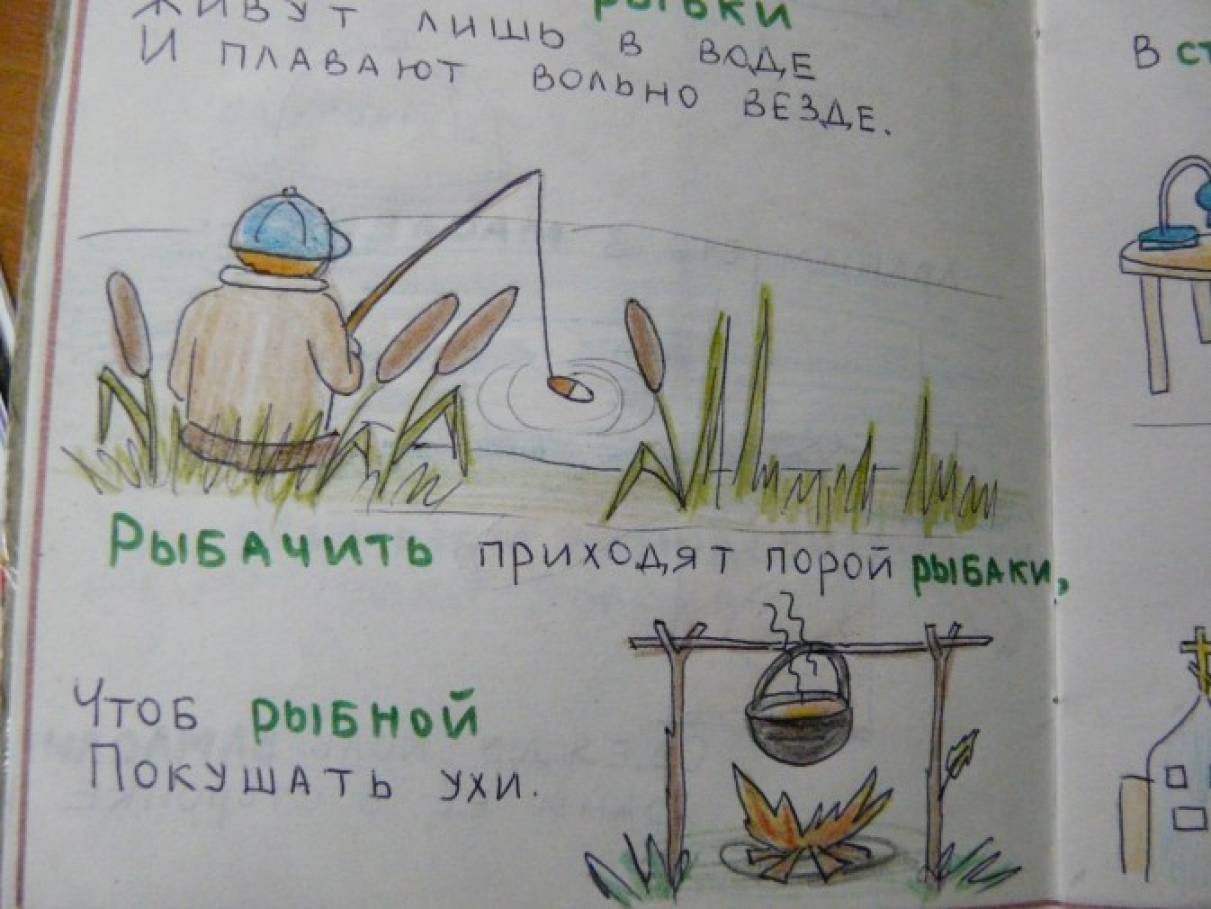 рыбки
Живут лишь в воде
И плавают вольно везде.
Рыбачить приходят порой рыбаки,
Чтоб рыбной
Покушать ухи.
В